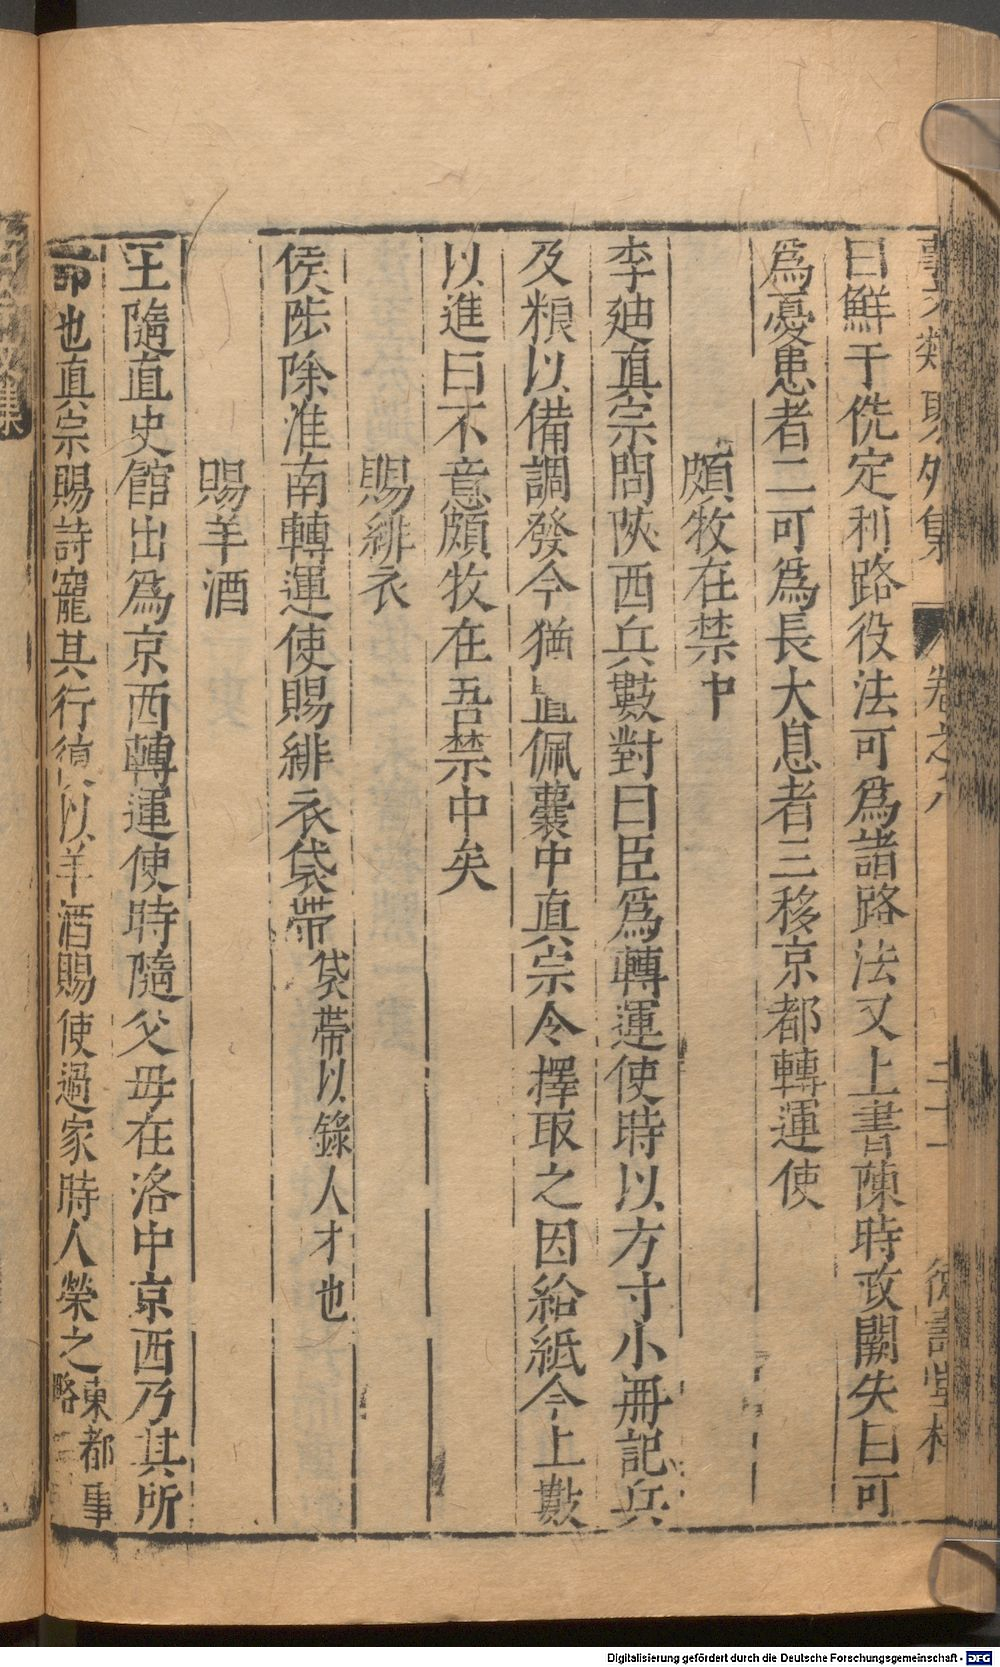 事文類聚外集 卷之八 二十一 德壽堂梓
曰鮮于侁定利路役法可爲諸路法又上書陳時政闕失曰可
爲憂患者二可爲長大息者三移京都轉運使
頗牧在禁中
李廸眞宗問陜西兵數對曰臣爲轉運使時以方寸小冊記兵
及粮以備調發今猶置佩囊中眞宗令擇取之因給紙今上數
以進曰不意頗牧在吾禁中矣
賜緋衣
侯陟除淮南轉運使賜緋衣袋帶袋帶以錄人才也
賜羊酒
王隨直史館出爲京西轉運使時隨父毋在洛中京西乃其所
部也眞宗賜詩寵其行復以羊酒賜使過家時人榮之東都事略
Digitalisierung gefördert durch die Deutsche Forschungsgemeinschaft - DFG